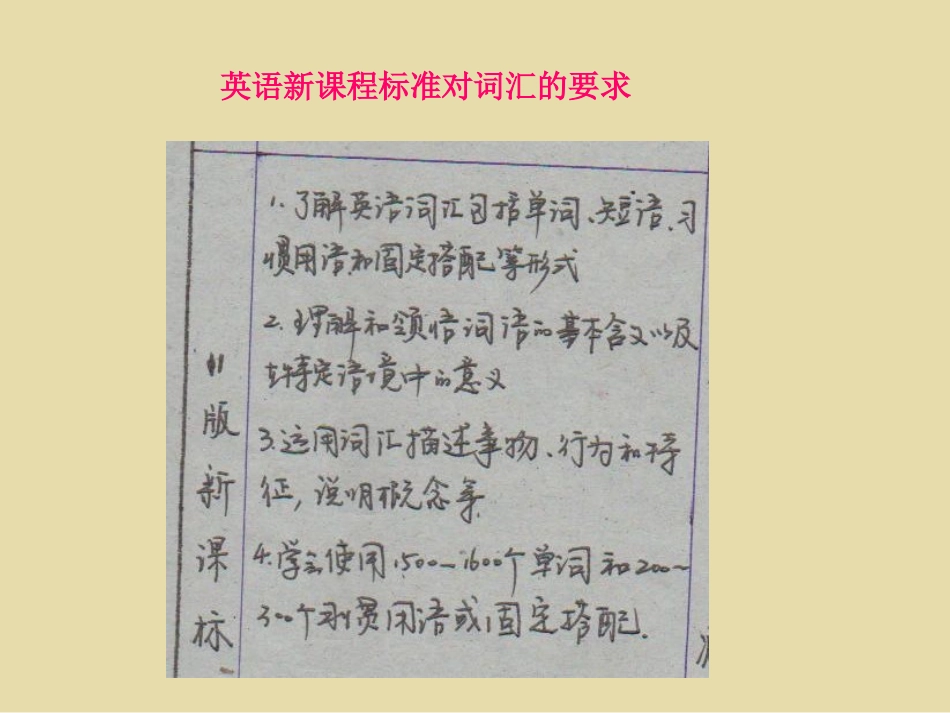 英语新课程标准对词汇的要求
11
版
新
课
标
1.了解英语词汇包括单词、短语、习
惯用语和固定搭配等形式
2.理解和领悟词语的基本含义以及
在特定语境中的意义
3.运用词汇描述事物、行为和特
征,说明概念等
4.学会使用1500~1600个单词和200~
300个习惯用语或固定搭配.